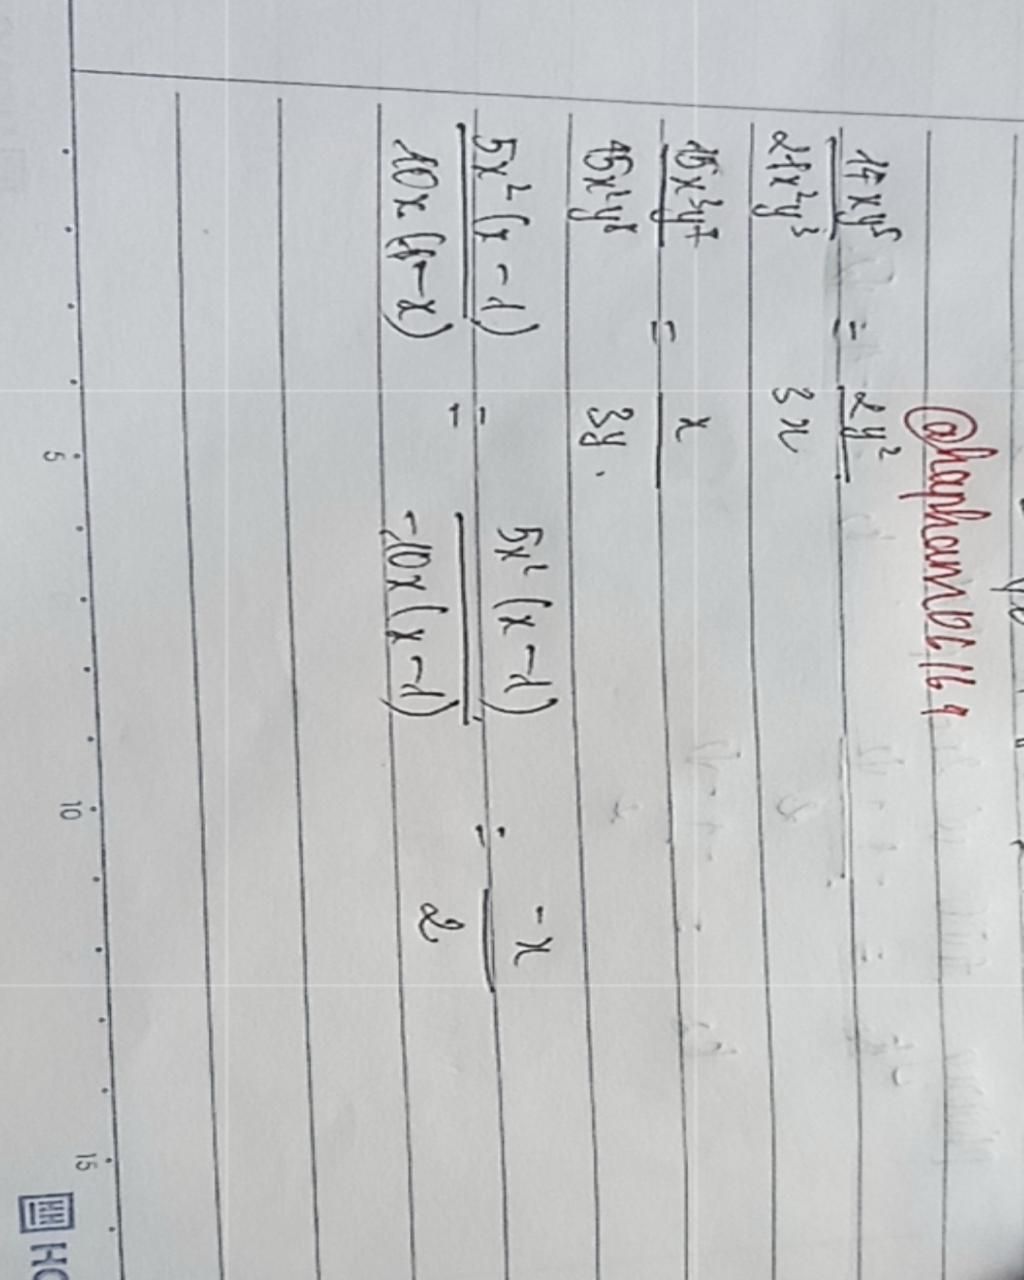 @hapham06169
14xy⁵ / 21x²y³ = 2y² / 3x
15x³y⁷ / 45x²y⁸ = x / 3y.
5x²(x-1) / 10x(1-x) = 5x²(x-1) / -10x(x-1) = -x / 2
5
10
15